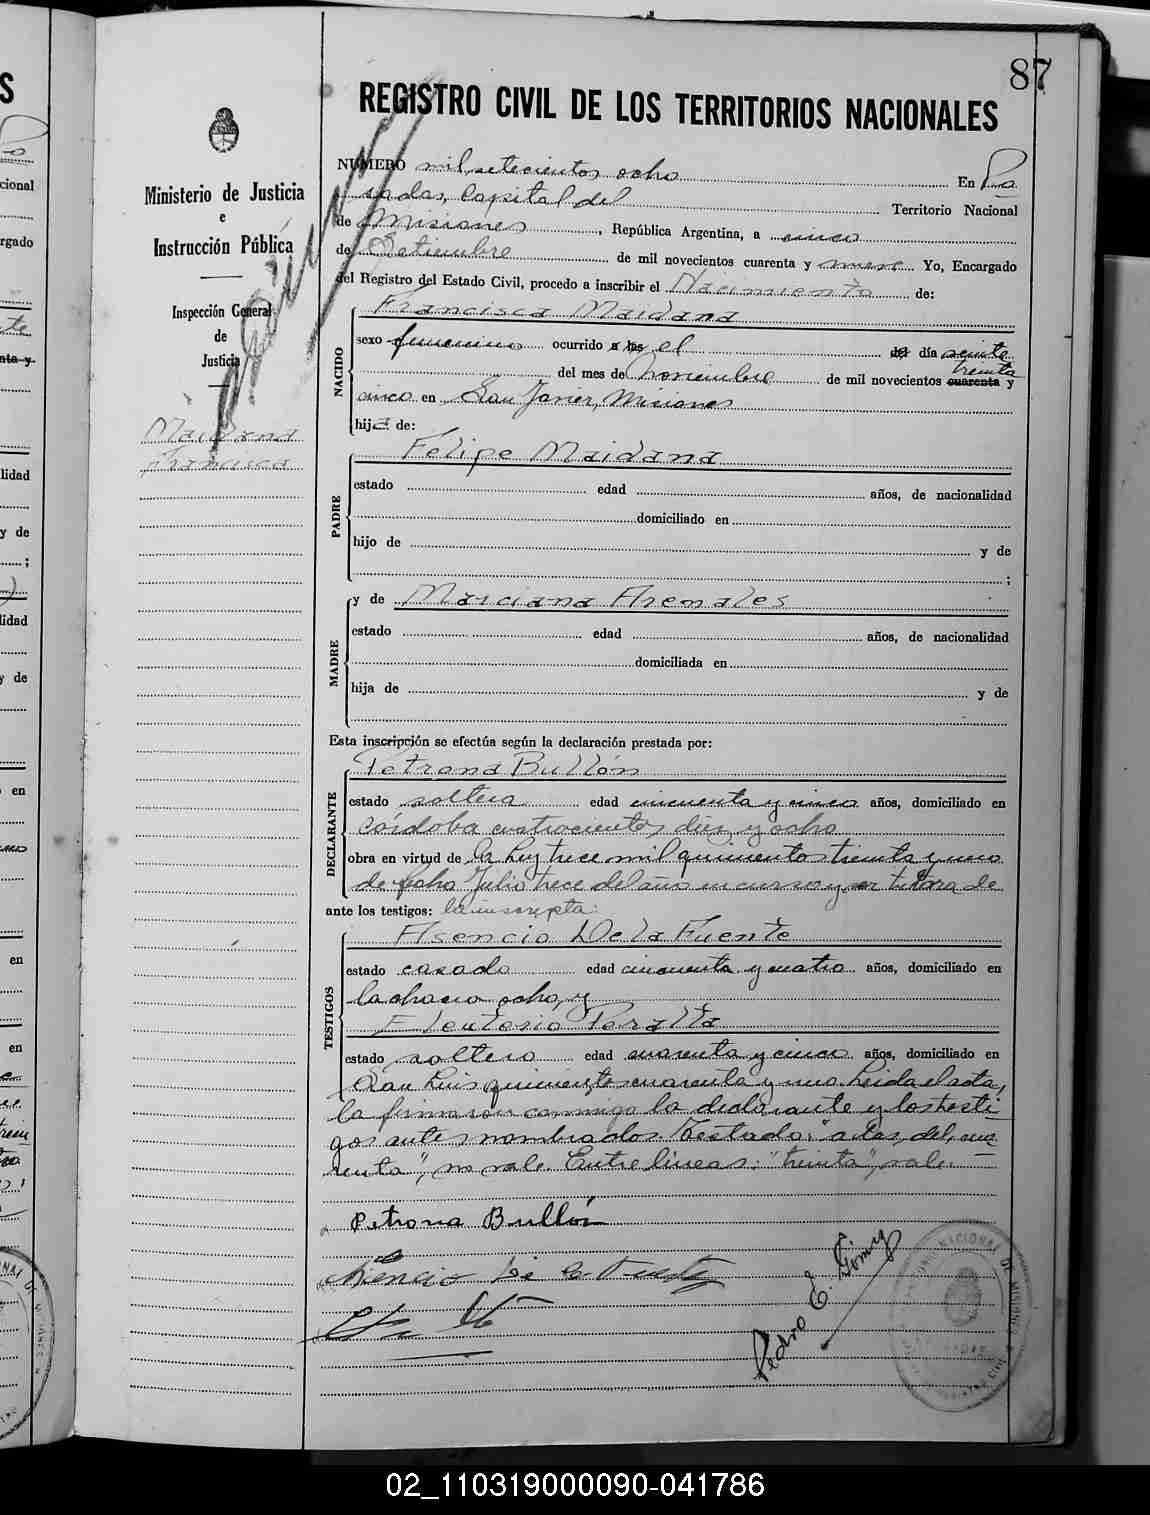 87
REGISTRO CIVIL DE LOS TERRITORIOS NACIONALES
Ministerio de Justicia
e
Instrucción Pública
Inspección General
de
Justicia
Maidana
Francisca
NUMERO mil setecientos ocho En Po
sadas, Capital del Territorio Nacional
de Misiones, República Argentina, a cinco
de Setiembre de mil novecientos cuarenta y nueve Yo, Encargado
del Registro del Estado Civil, procedo a inscribir el Nacimiento de:
NACIDO
Francisca Maidana
sexo femenino ocurrido a las el del día veinte
treinta
del mes de Noviembre de mil novecientos cuarenta y
cinco en San Javier, Misiones
hija de:
PADRE
Felipe Maidana
estado edad años, de nacionalidad
domiciliado en
hijo de y de
;
MADRE
y de Marciana Arenales
estado edad años, de nacionalidad
domiciliada en
hija de y de
Esta inscripción se efectúa según la declaración prestada por:
DECLARANTE
Petrona Bullón
estado soltera edad cincuenta y cinco años, domiciliado en
Córdoba cuatrocientos diez y ocho
obra en virtud de la Ley trece mil quinientos treinta y uno
de fecha Julio trece del año en curso y tutora de
ante los testigos: la inscripta.
TESTIGOS
Asencio De la Fuente
estado casado edad cincuenta y cuatro años, domiciliado en
la chacra ocho, y
Eleuterio Peralta
estado soltero edad cuarenta y cinco años, domiciliado en
San Luis quinientos cuarenta y uno. Leida el acta,
la firmaron conmigo la declarante y los testi-
gos antes nombrados. Testado: "a las, del, cua
renta", no vale. Entre lineas: "treinta", vale.
Petrona Bullón
Asencio De la Fuente
Pedro E. Gómez
02_110319000090-041786